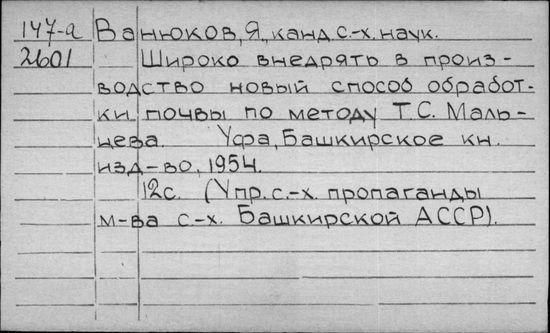 147-а Ванюков, Я., канд. с.-х. наук.
2601 Широко внедрять в произ-
водство новый способ обработ-
ки почвы по методу Т.С. Маль-
цева. Уфа, Башкирское кн.
изд-во, 1954.
12с. (Упр. с.-х. пропаганды
м-ва с.-х. Башкирской АССР).